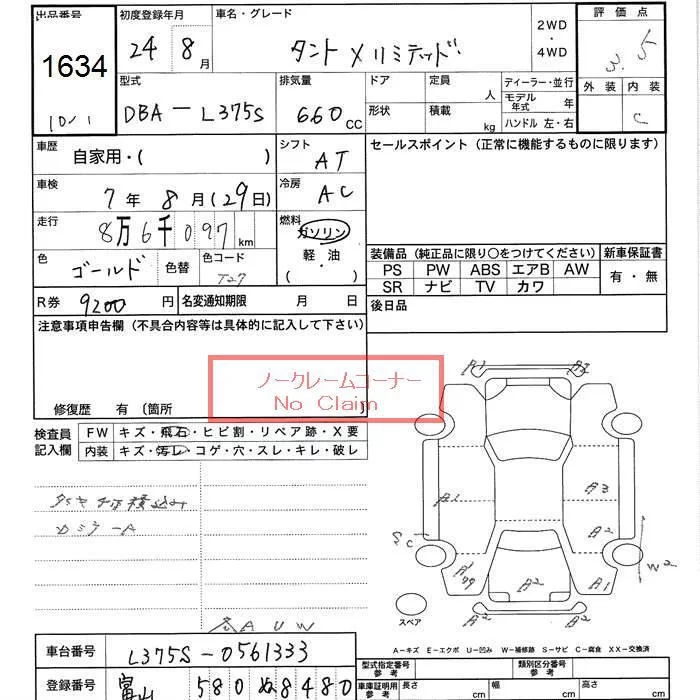 出品番号 初度登録年月 車名・グレード 2WD・4WD 評価点
1634 24年8月 タント X リミテッド 3.5
10/1
型式 排気量 ドア 定員 ディーラー・並行 外装 内装
DBA-L375S 660cc 形状 積載 人 kg モデル年式 年 C
ハンドル 左・右
車歴 自家用・( ) シフト AT セールスポイント (正常に機能するものに限ります)
車検 7年8月(29日) 冷房 AC
走行 8万6千097km 燃料 ガソリン
軽油・( )
色 ゴールド 色替 色コード T27
装備品 (純正品に限り〇をつけてください) 新車保証書
PS PW ABS エアB AW 有・無
SR ナビ TV カワ
R券 9200円 名変通知期限 月 日 後日品
注意事項申告欄 (不具合内容等は具体的に記入して下さい)
ノークレームコーナー
No Claim
修復歴 有 〔箇所 〕
検査員記入欄 FW キズ・飛石・ヒビ割・リペア跡・X要
内装 キズ・汚レ・コゲ・穴・スレ・キレ・破レ
カミラーA
A1 A2
A1 A3
A2
Sc
W2
A1 A2 A1
A2
スペア
各AUW
A-キズ E-エクボ U-凹み W-補修跡 S-サビ C-腐食 XX-交換済
車台番号 L375S-0561333
登録番号 富山 580 ぬ8480
型式指定番号 参考 類別区分番号 参考
車庫証明用 参考 長さ cm 幅 cm 高さ cm